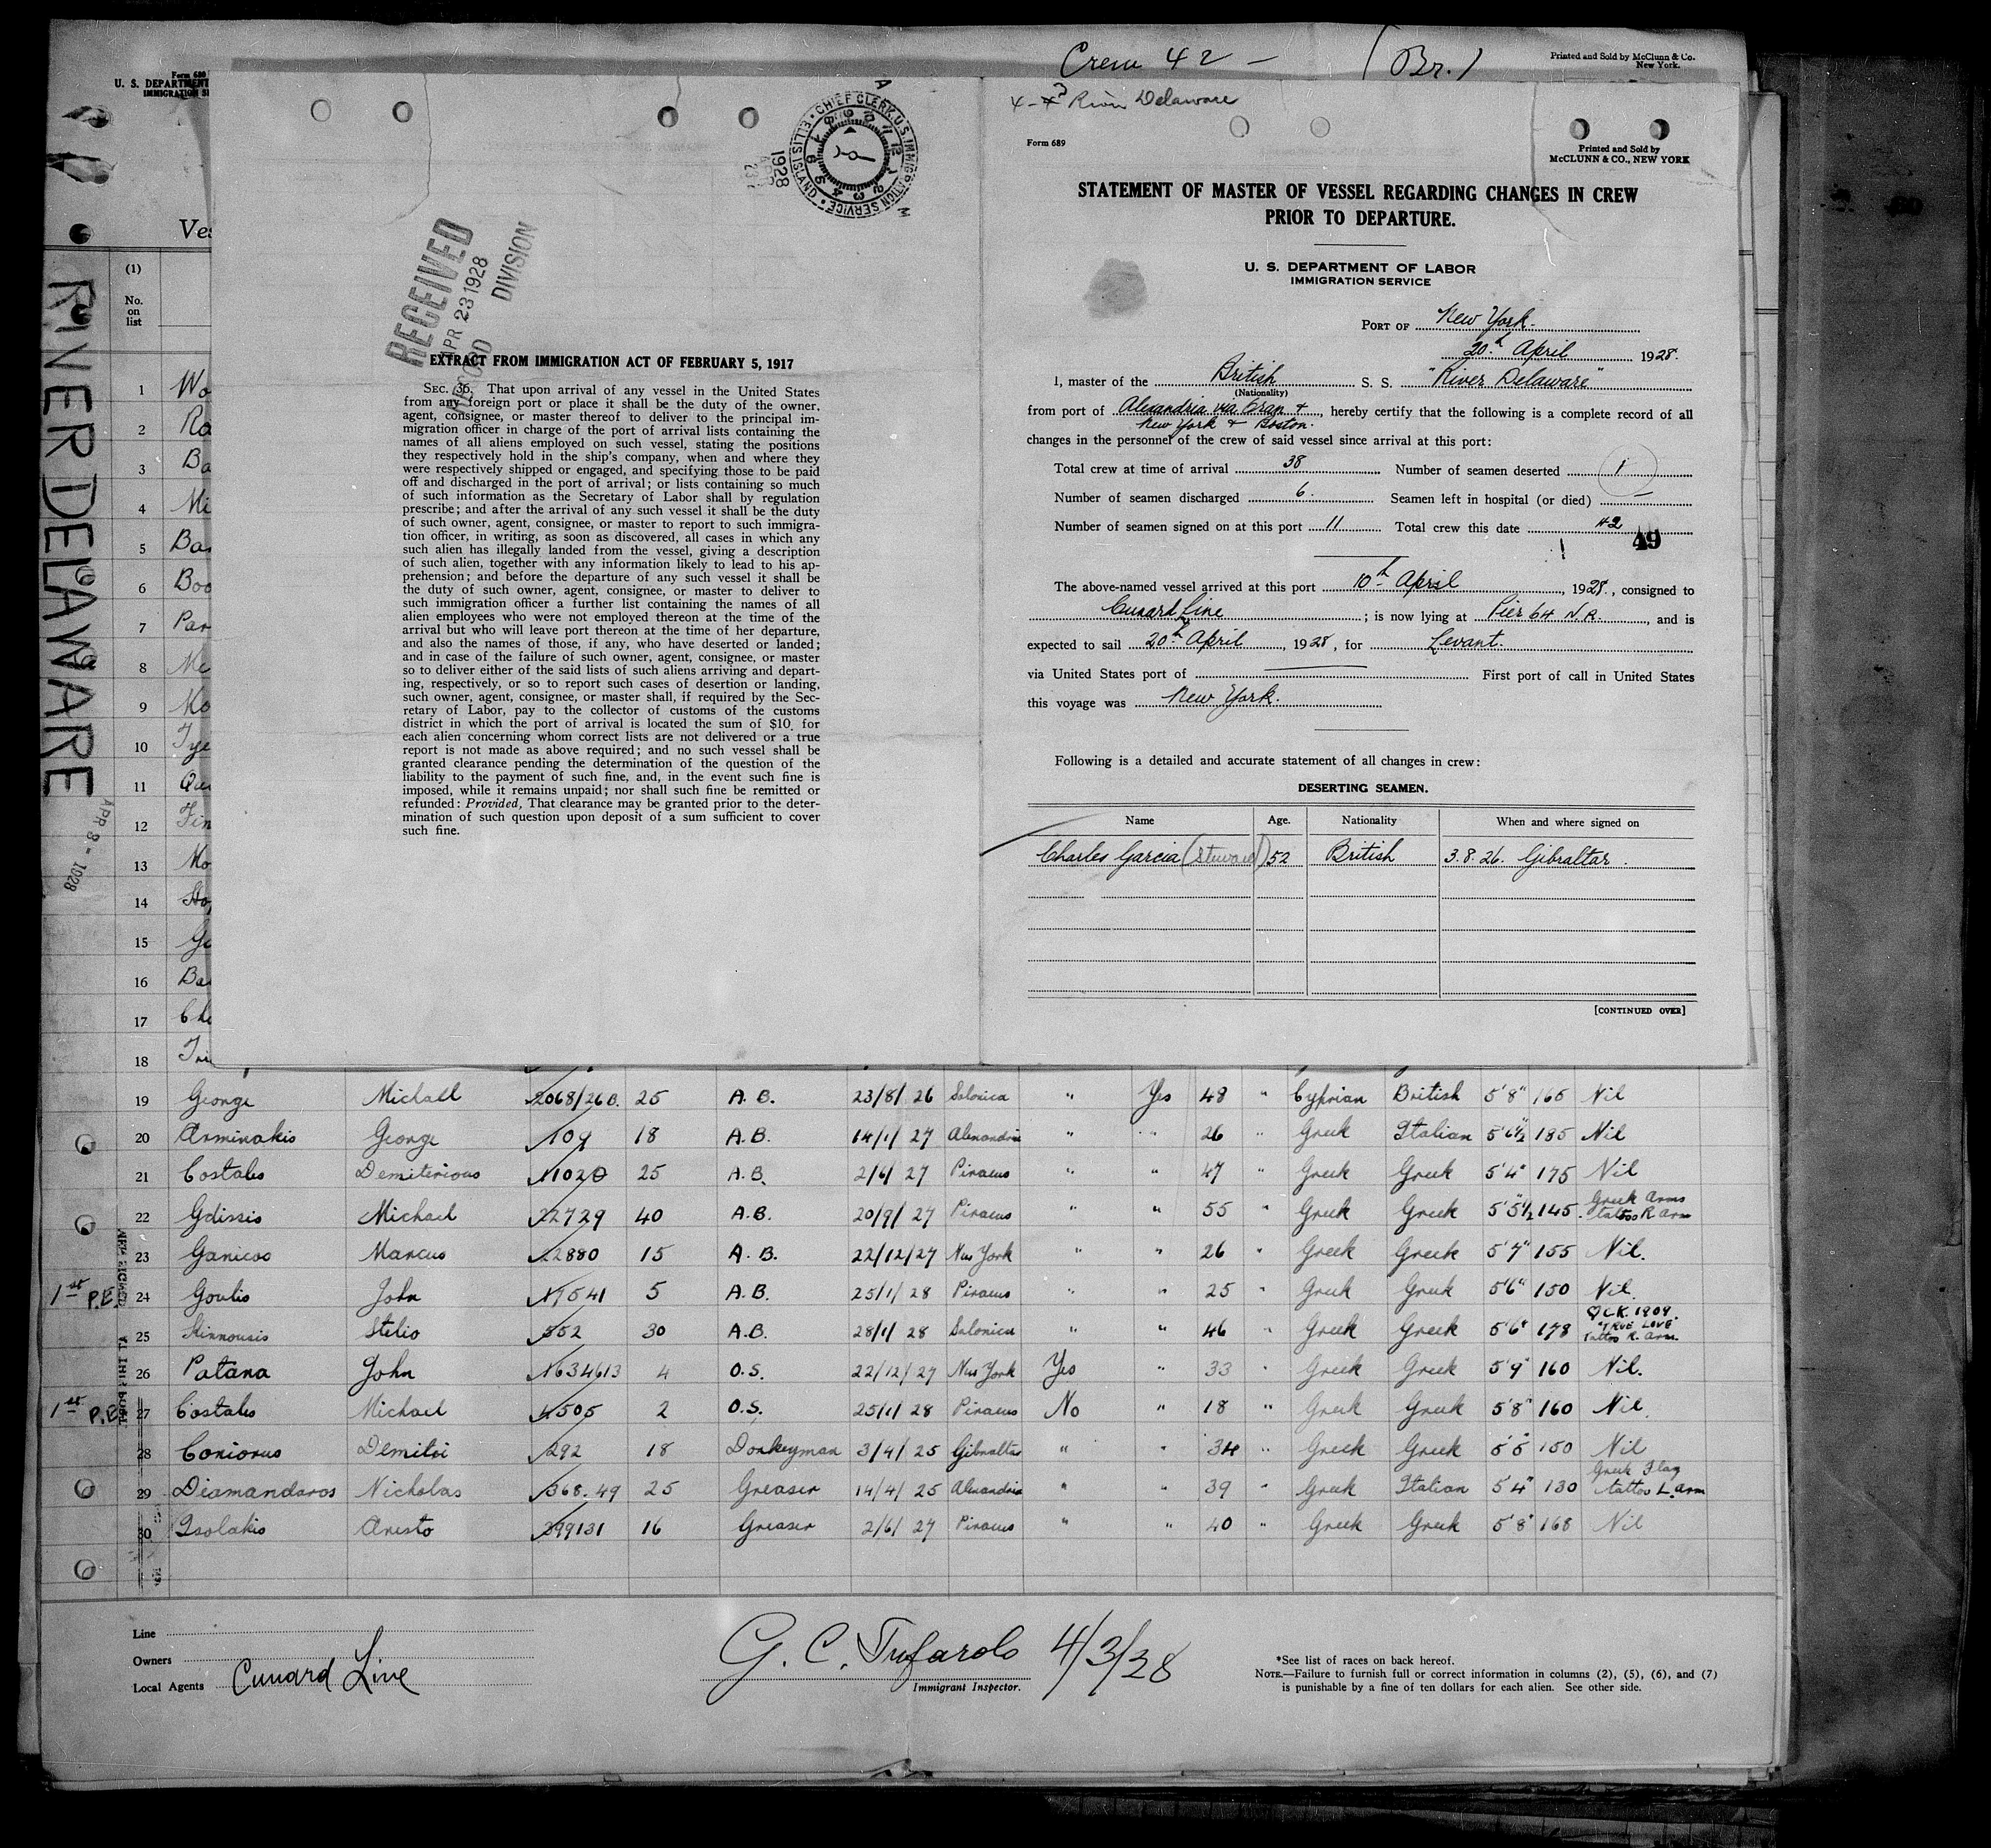 Crew 42 — (Br.)
Printed and Sold by McClunn & Co.
New York.
Form 680
U. S. DEPARTMENT
IMMIGRATION SE
4-3 River Delaware
Form 689
Printed and Sold by
McCLUNN & CO., NEW YORK
STATEMENT OF MASTER OF VESSEL REGARDING CHANGES IN CREW
PRIOR TO DEPARTURE.
U. S. DEPARTMENT OF LABOR
IMMIGRATION SERVICE
PORT OF New York.
20th April 1928.
I, master of the British S. S. "River Delaware"
(Nationality)
from port of Alexandria via Oran + , hereby certify that the following is a complete record of all
New York + Boston.
changes in the personnel of the crew of said vessel since arrival at this port:
Total crew at time of arrival 38 Number of seamen deserted 1
Number of seamen discharged 6. Seamen left in hospital (or died) —
Number of seamen signed on at this port 11 Total crew this date 42
49
The above-named vessel arrived at this port 10th April, 1928., consigned to
Cunard Line ; is now lying at Pier 64 N.R. , and is
expected to sail 20th April, 1928, for Levant.
via United States port of —— First port of call in United States
this voyage was New York.
Following is a detailed and accurate statement of all changes in crew:
DESERTING SEAMEN.
Name Age. Nationality When and where signed on
Charles Garcia (Steward) 52 British 3.8.26. Gibraltar.
[CONTINUED OVER]
CHIEF CLERK U.S. IMMIGRATION SERVICE • ELLIS ISLAND •
1928
APR
23
A
M
RECEIVED
APR 23 1928
RECORD DIVISION
EXTRACT FROM IMMIGRATION ACT OF FEBRUARY 5, 1917
SEC. 36. That upon arrival of any vessel in the United States
from any foreign port or place it shall be the duty of the owner,
agent, consignee, or master thereof to deliver to the principal im-
migration officer in charge of the port of arrival lists containing the
names of all aliens employed on such vessel, stating the positions
they respectively hold in the ship's company, when and where they
were respectively shipped or engaged, and specifying those to be paid
off and discharged in the port of arrival; or lists containing so much
of such information as the Secretary of Labor shall by regulation
prescribe; and after the arrival of any such vessel it shall be the duty
of such owner, agent, consignee, or master to report to such immigra-
tion officer, in writing, as soon as discovered, all cases in which any
such alien has illegally landed from the vessel, giving a description
of such alien, together with any information likely to lead to his ap-
prehension; and before the departure of any such vessel it shall be
the duty of such owner, agent, consignee, or master to deliver to
such immigration officer a further list containing the names of all
alien employees who were not employed thereon at the time of the
arrival but who will leave port thereon at the time of her departure,
and also the names of those, if any, who have deserted or landed;
and in case of the failure of such owner, agent, consignee, or master
so to deliver either of the said lists of such aliens arriving and depart-
ing, respectively, or so to report such cases of desertion or landing,
such owner, agent, consignee, or master shall, if required by the Sec-
retary of Labor, pay to the collector of customs of the customs
district in which the port of arrival is located the sum of $10 for
each alien concerning whom correct lists are not delivered or a true
report is not made as above required; and no such vessel shall be
granted clearance pending the determination of the question of the
liability to the payment of such fine, and, in the event such fine is
imposed, while it remains unpaid; nor shall such fine be remitted or
refunded: Provided, That clearance may be granted prior to the deter-
mination of such question upon deposit of a sum sufficient to cover
such fine.
RIVER DELAWARE
APR 3 - 1928
Ves
(1)
No.
on
list
1 Wo
2 Ro
3 Ba
4 Mi
5 Bar
6 Boo
7 Par
8 Mc
9 Mo
10 Tye
11 Que
12 Fin
13 Mo
14 Ho
15 Ge
16 Ba
17 Che
18 Tri
19 George Michael 2068/26B. 25 A.B. 23/8/26 Salonica " Yes 48 " Cyprian British 5'8" 165 Nil
20 Arminakis George 109 18 A.B. 14/1/27 Alexandria " " 26 " Greek Italian 5'6½ 185 Nil
21 Costales Demiterious 11020 25 A.B. 2/6/27 Piraeus " " 47 " Greek Greek 5'4" 175 Nil
22 Gdissis Michael 22729 40 A.B. 20/9/27 Piraeus " " 55 " Greek Greek 5'5½ 145. Greek Arms tattoo R arm
23 Ganicos Marcus 22880 15 A.B. 22/12/27 New York " " 26 " Greek Greek 5'7" 155 Nil.
1st P.E. 24 Goulis John 17541 5 A.B. 25/1/28 Piraeus " " 25 " Greek Greek 5'6" 150 Nil.
25 Skinnousis Stelio 552 30 A.B. 28/1/28 Salonica " " 46 " Greek Greek 5'6" 178 C.K. 1909. "TRUE LOVE" Tattoo R. arm
26 Patana John 1634613 4 O.S. 22/12/27 New York Yes " 33 " Greek Greek 5'9" 160 Nil.
1st P.E. 27 Costales Michael 4505 2 O.S. 25/1/28 Piraeus No " 18 " Greek Greek 5'8" 160 Nil.
28 Coniorus Demitri 292 18 Donkeyman 3/4/25 Gibraltar " " 34 " Greek Greek 5'5" 150 Nil
29 Diamandaros Nicholas 368.49 25 Greaser 14/4/25 Alexandria " " 39 " Greek Italian 5'4" 130 Greek Flag tattoo L. arm
30 Tsolakis Aristo 299131 16 Greaser 2/6/27 Piraeus " " 40 " Greek Greek 5'8" 168 Nil
Line
Owners
Local Agents Cunard Line
G. C. Tufarolo 4/3/28
Immigrant Inspector.
*See list of races on back hereof.
NOTE.—Failure to furnish full or correct information in columns (2), (5), (6), and (7)
is punishable by a fine of ten dollars for each alien. See other side.